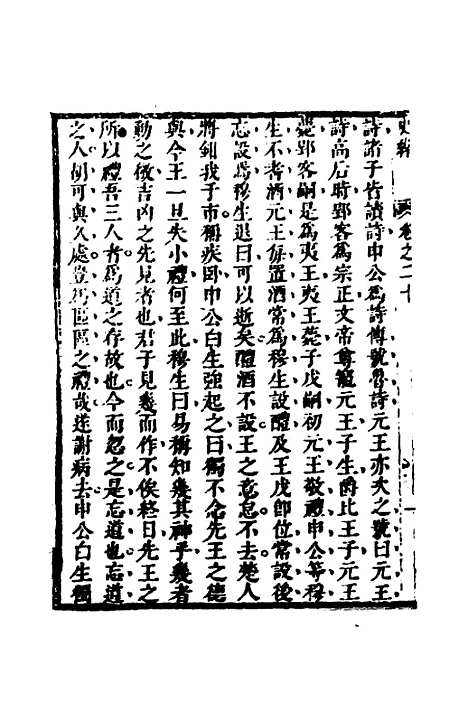 卷之二十
詩諸子皆讀詩申公爲詩傳號魯詩元王亦次之號曰元王
詩高后時郢客爲宗正文帝尊寵元王子生爵比王子元王
薨郢客嗣是爲夷王夷王薨子戊嗣初元王敬禮申公等穆
生不耆酒元王每置酒常爲穆生設醴及王戊即位常設後
忘設焉穆生退曰可以逝矣醴酒不設王之意怠不去楚人
將鉗我于市稱疾卧申公白生強起之曰獨不念先王之德
與今王一旦失小禮何至此穆生曰易稱知幾其神乎幾者
動之微吉凶之先見者也君子見幾而作不俟終日先王之
所以禮吾三人者爲道之存故也今而忽之是忘道也忘道
之人胡可與久處豈爲區區之禮哉遂謝病去申公白生獨